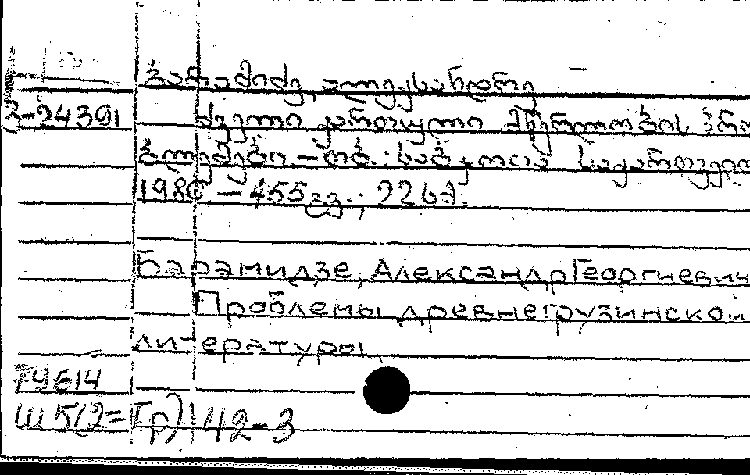 ბარამიძე, ალექსანდრე
3-24391 ძველი ქართული მწერლობის პრო
ბლემები.–თბ.: საბჭოთა საქართველო
1980 – 455გვ.; 22სმ.
Барамидзе, Александр Георгиевич
Проблемы древнегрузинской
литературы.
Ш5(2=Гр) 142-3